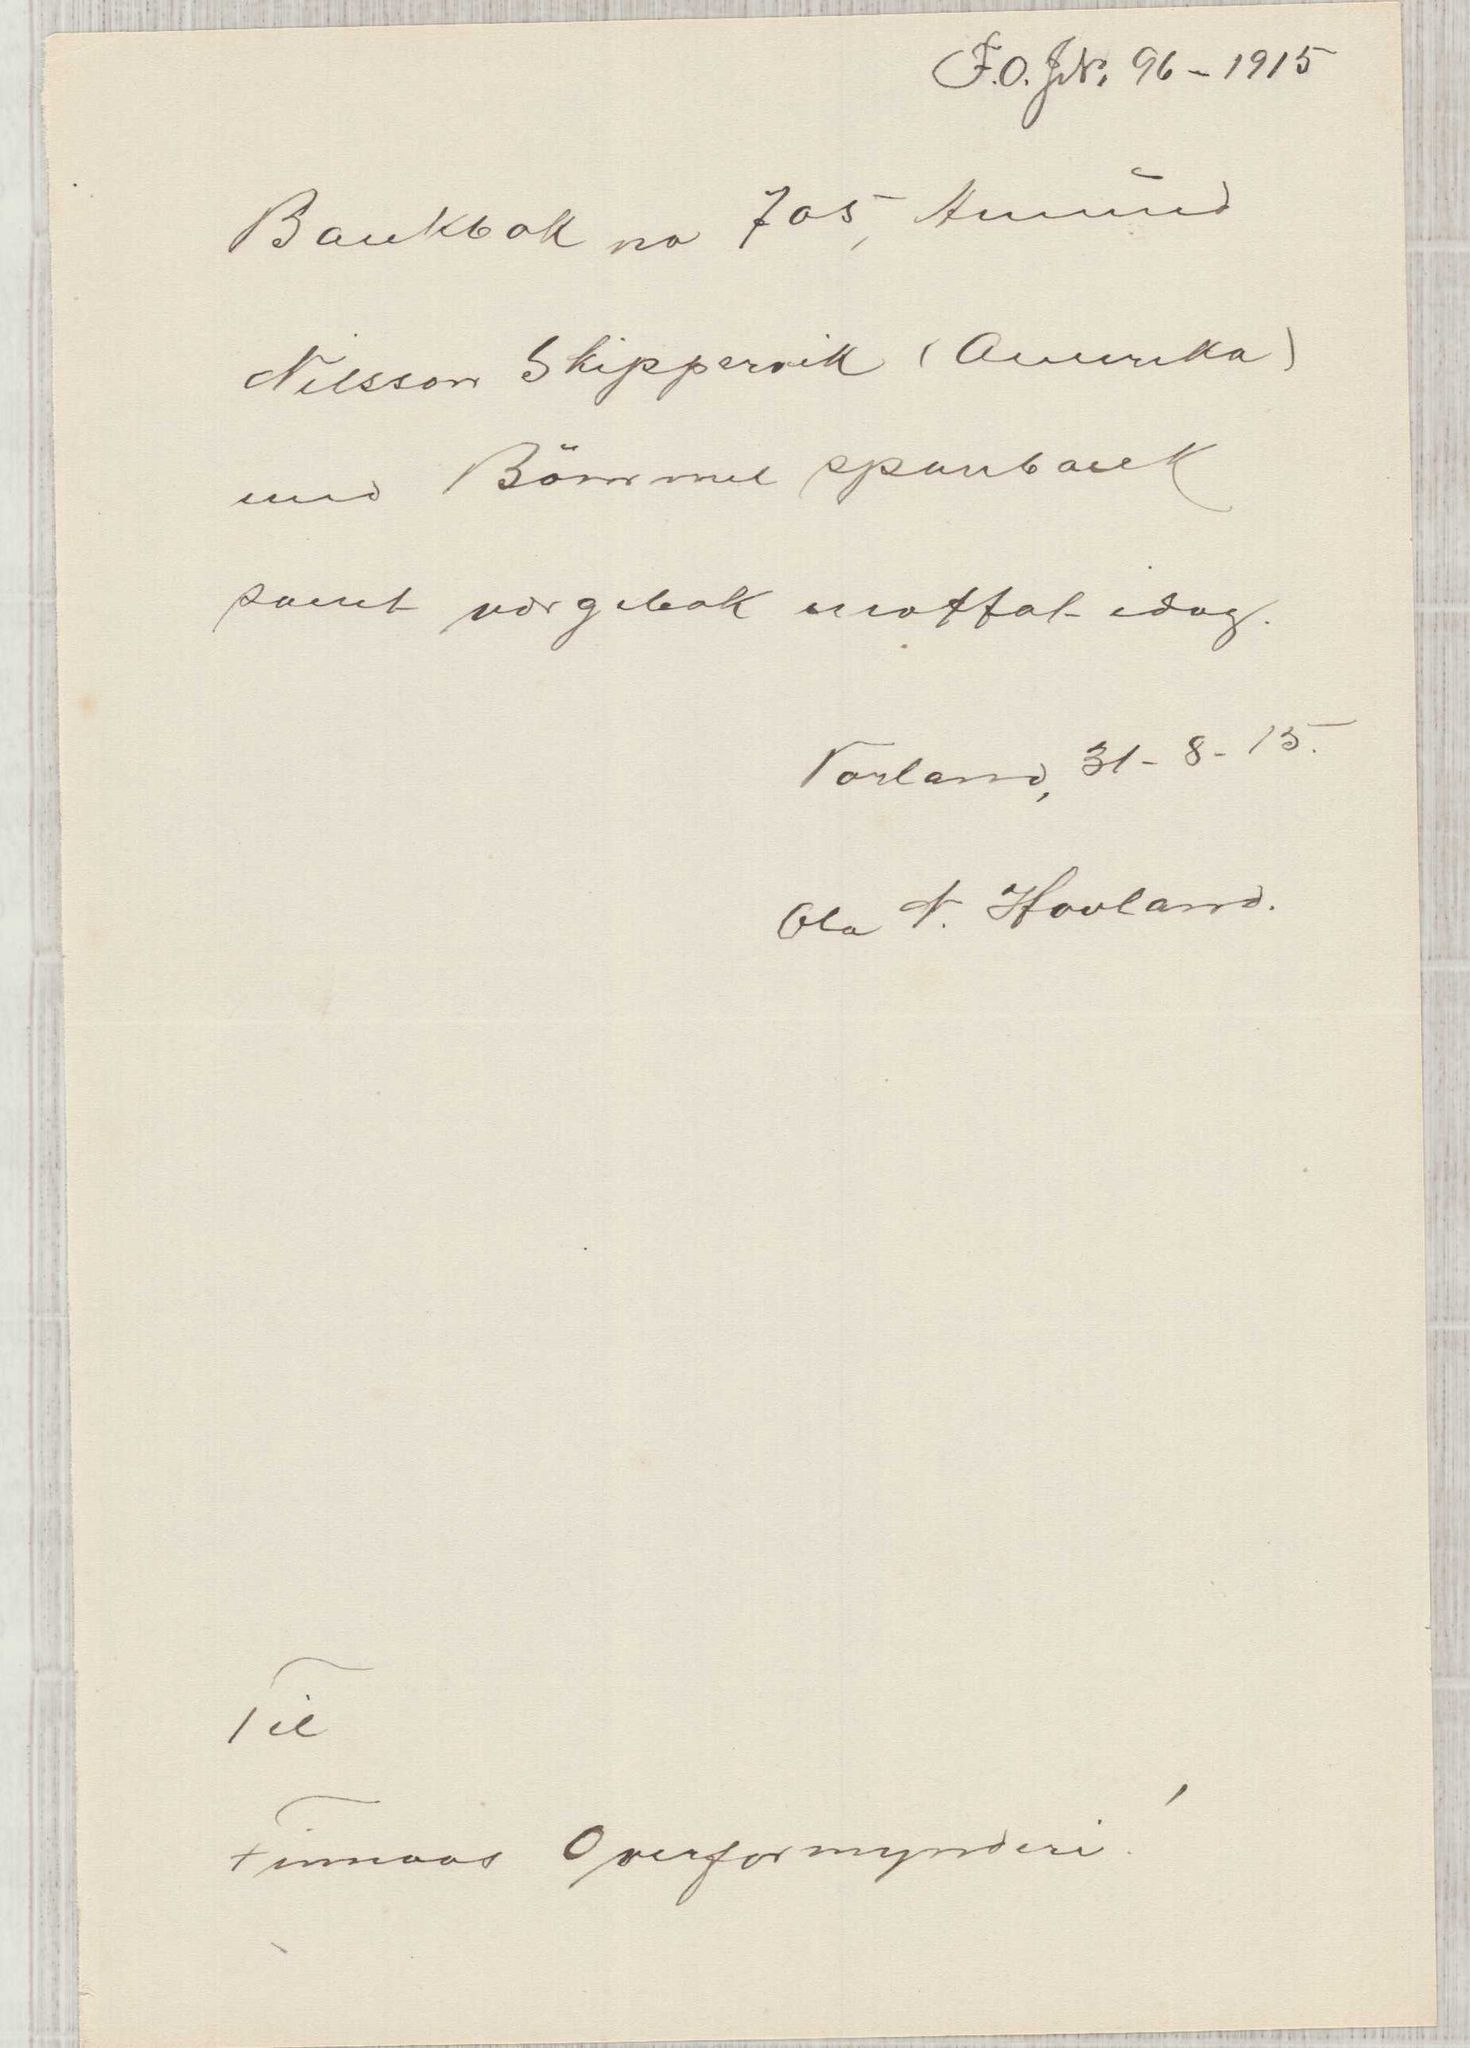 F.O. J.N. 96 - 1915
Bankbok no 705, Amund
Nilsson Skippervik (Amerika)
med Bömmel sparbank
samt vergebok mottat idag.
Vorland, 31-8-15.
Ola N. Hovland.
Til
Finnaas Overformynderi!